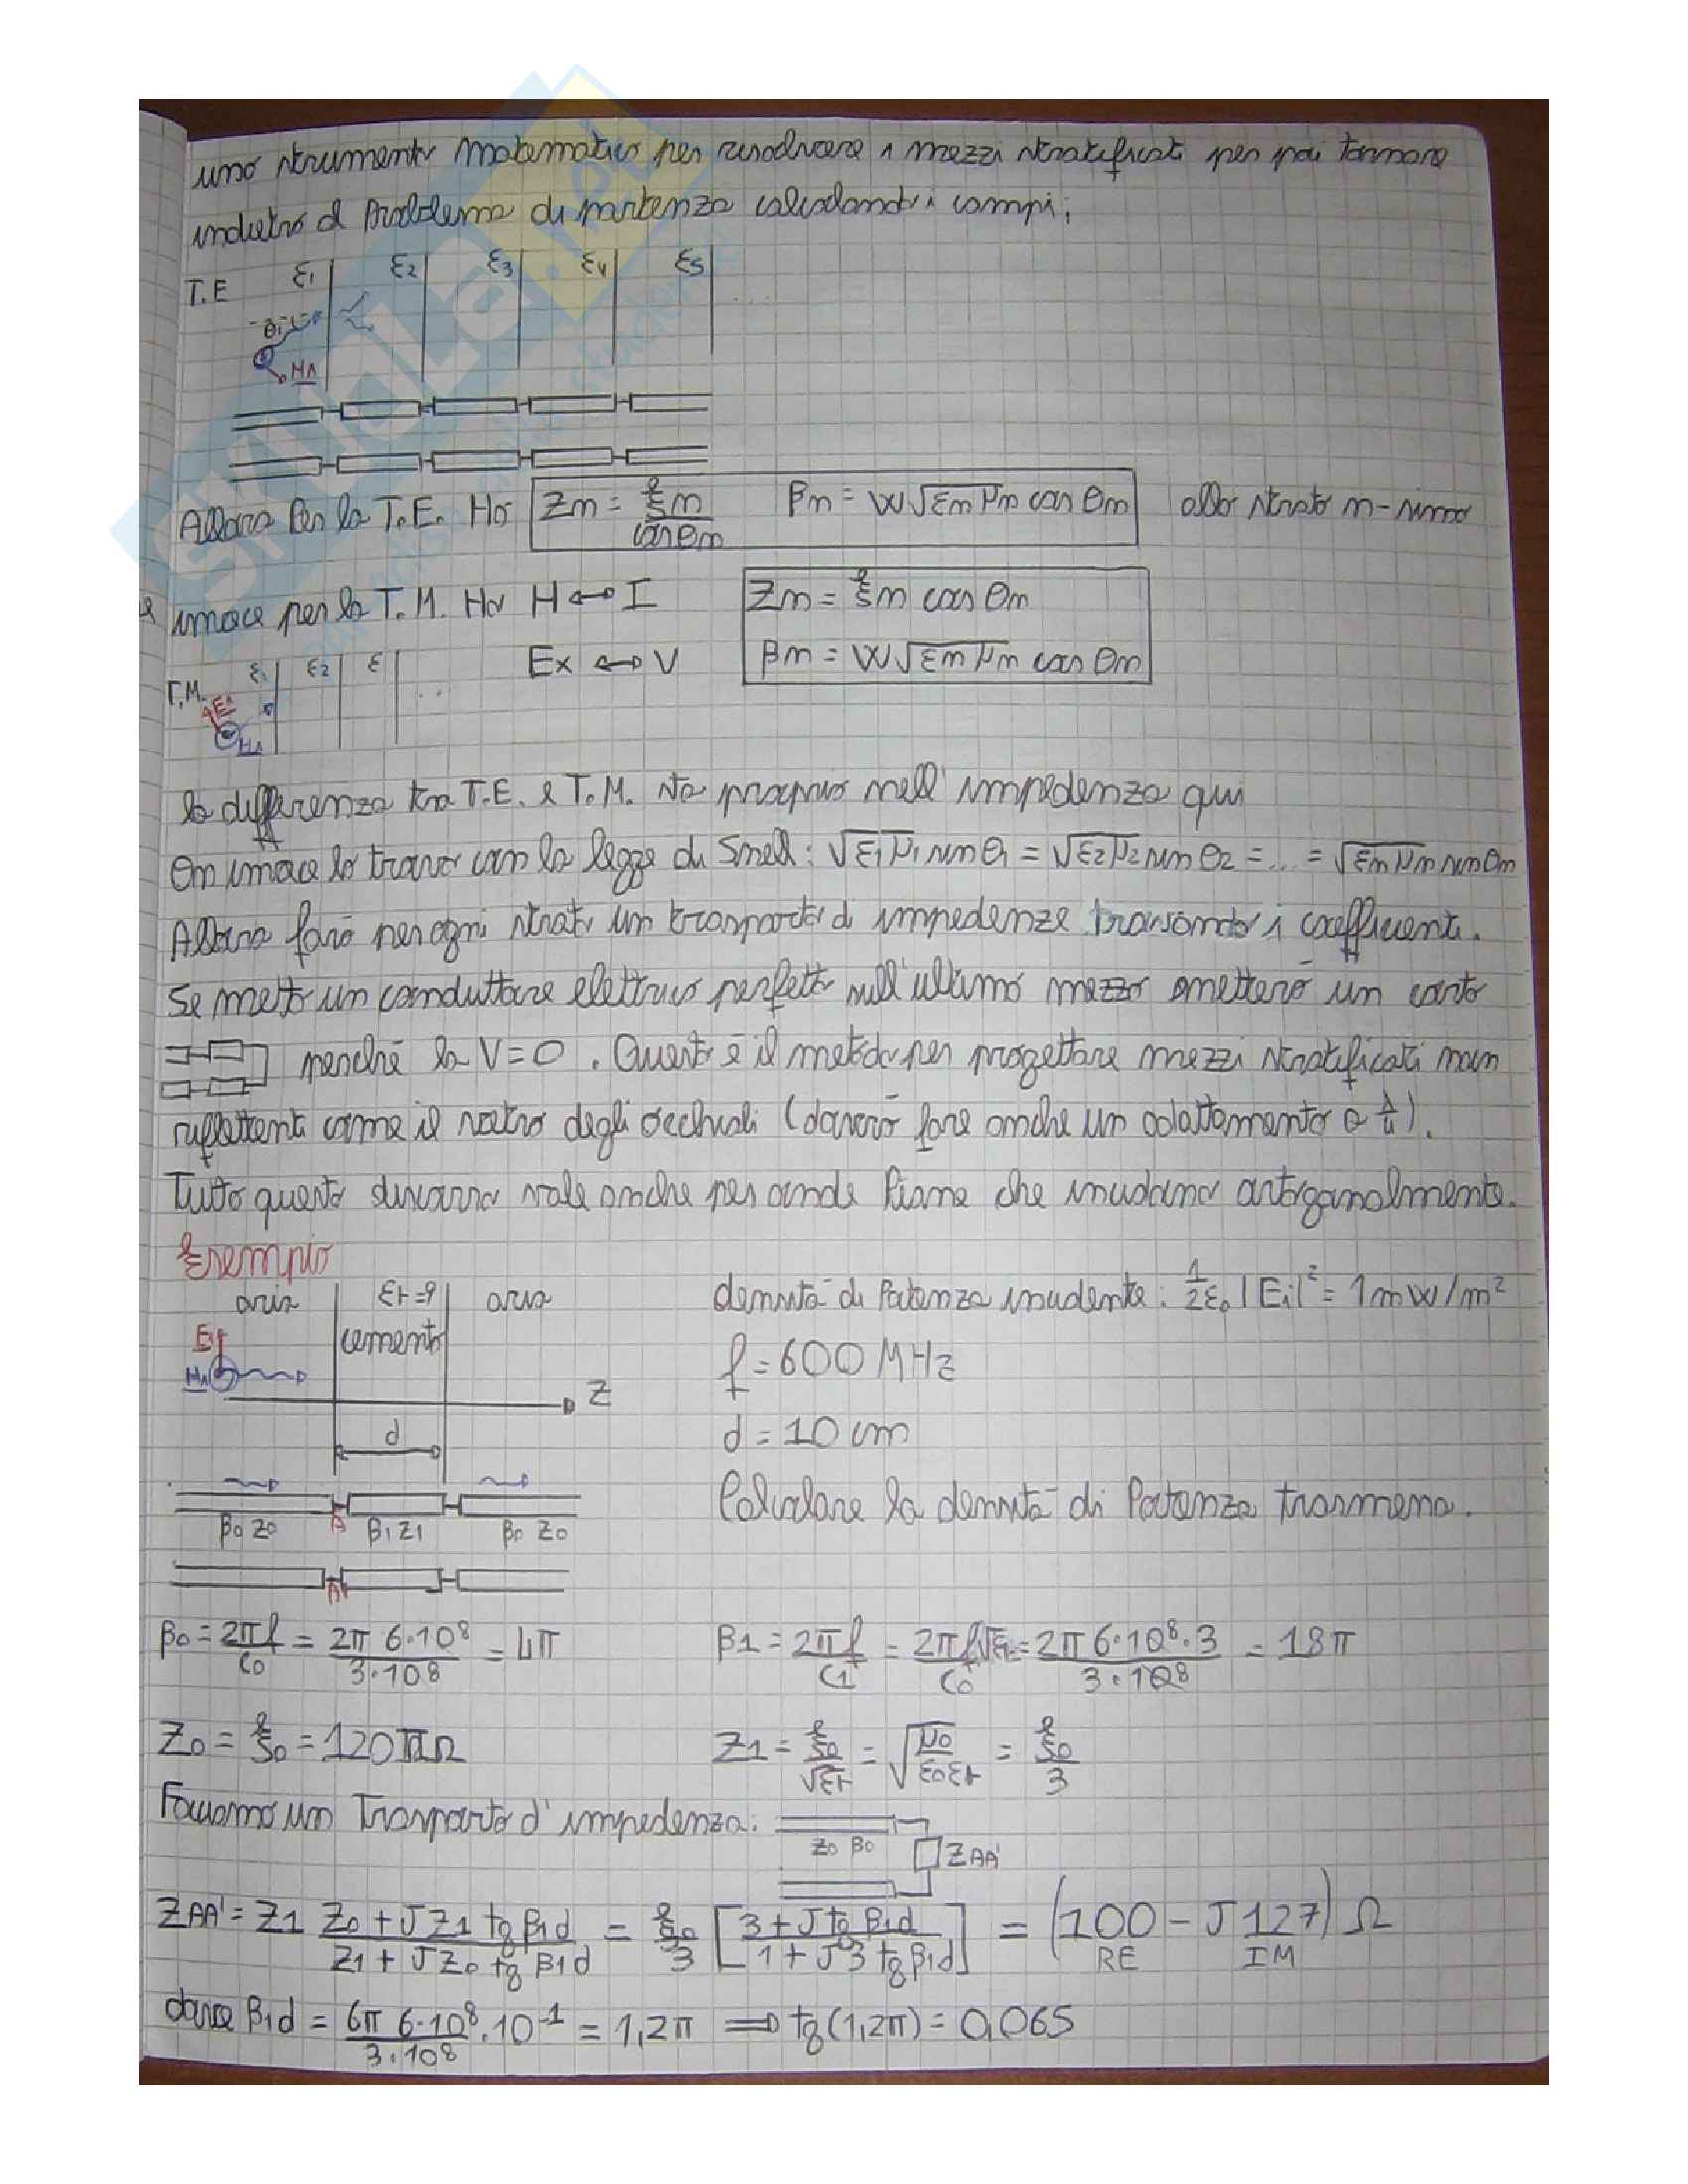 uno strumento matematico per risolvere i mezzi stratificati per poi tornare
indietro al Problema di partenza calcolando i campi;
T.E ε1 ε2 ε3 ε4 ε5
θi
H1
Allora Per la T.E. Ho Zm = ξm / cos θm βm = W√εm μm cos θm allo strato m-simo
e invece per la T.M. Ho H ↔ I Zm = ξm cos θm
Ex ↔ V βm = W√εm μm cos θm
T.M. ε1 ε2 ε ..
E1
H1
la differenza tra T.E. e T.M. sta proprio nell'impedenza qui
θm invece lo trovo con la legge di Snell: √ε1 μ1 sin θ1 = √ε2 μ2 sin θ2 = ... = √εm μm sin θm
Allora farò per ogni strato un trasporto di impedenze trovando i coefficienti.
Se metto un conduttore elettrico perfetto sull'ultimo mezzo metterò un corto
perché la V=0. Questo è il metodo per progettare mezzi stratificati non
riflettenti come il vetro degli occhiali (dovrò fare anche un adattamento a λ/4).
Tutto questo discorso vale anche per onde Piane che incidono ortogonalmente.
Esempio
aria εr=9 aria densità di Potenza incidente: 1/2ε0 |Ei|² = 1mW/m²
cemento
E1
H1
f = 600 MHz
Z
d
d = 10 cm
Calcolare la densità di Potenza trasmessa.
β0 Z0 A β1 Z1 β0 Z0
A'
β0 = 2πf/C0 = 2π 6·10⁸ / 3·10⁸ = 4π β1 = 2πf/C1 = 2πf√εr/C0 = 2π 6·10⁸·3 / 3·10⁸ = 18π
Z0 = ξ0 = 120πΩ Z1 = ξ0/√εr = √μ0/ε0εr = ξ0/3
Facciamo un Trasporto d'impedenza:
Z0 β0 ZAA'
ZAA' = Z1 Z0 + J Z1 tg β1d / Z1 + J Z0 tg β1d = ξ0/3 [3 + J tg β1d / 1 + J 3 tg β1d] = (100 - J 127) Ω
RE IM
dove β1d = 6π 6·10⁸/3·10⁸ ·10⁻¹ = 1,2π ⟹ tg(1,2π) = 0,065